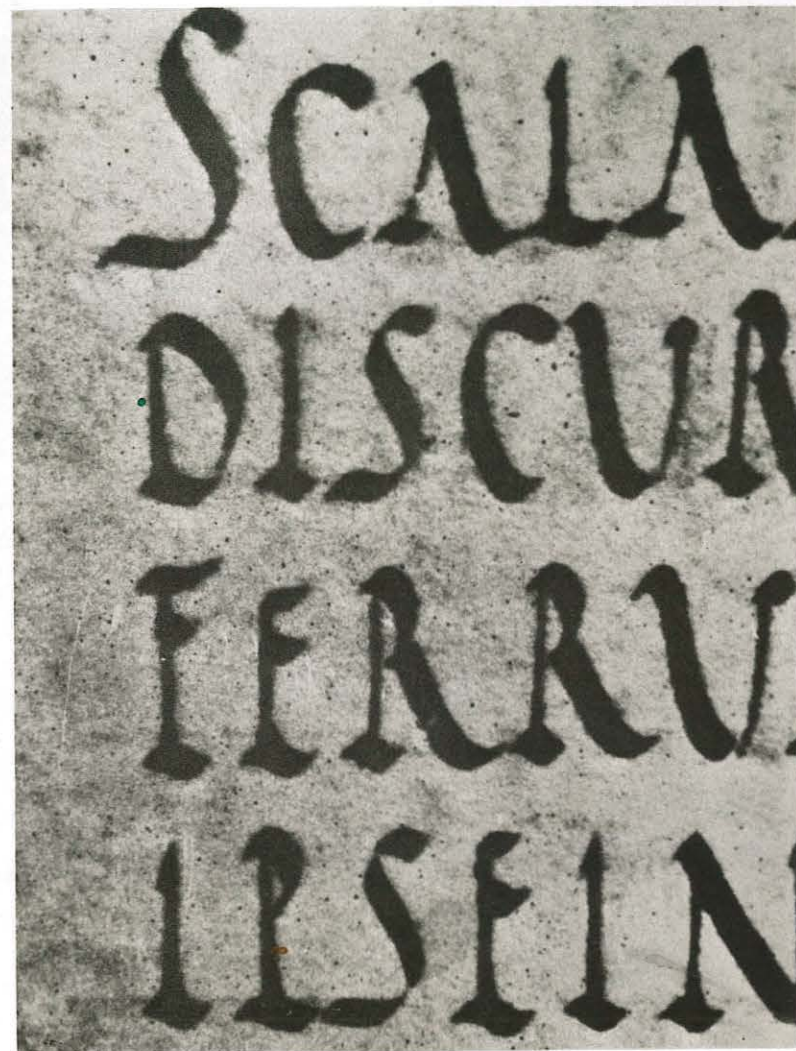 SCALA
DISCUR
FERRU
IPSEIN